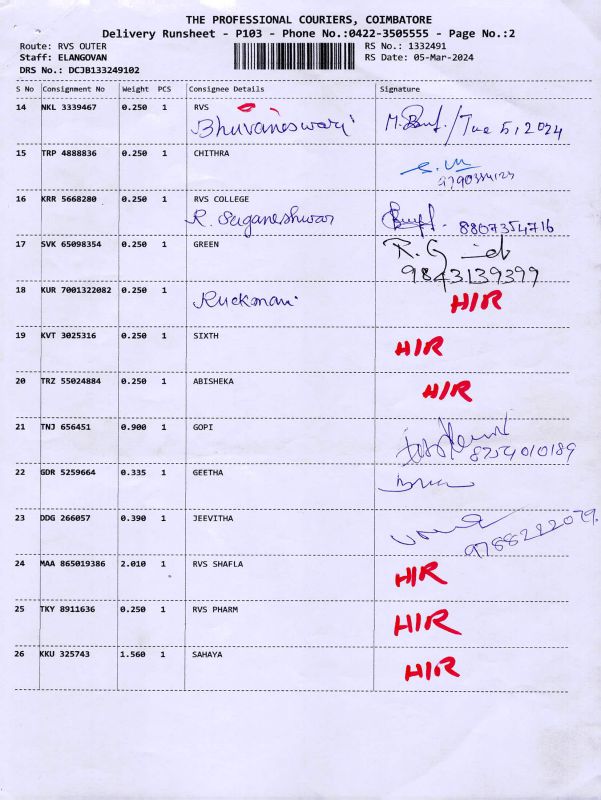 THE PROFESSIONAL COURIERS, COIMBATORE
Delivery Runsheet - P103 - Phone No.:0422-3505555 - Page No.:2
Route: RVS OUTER RS No.: 1332491
Staff: ELANGOVAN RS Date: 05-Mar-2024
DRS No.: DCJB133249102
S No Consignment No Weight PCS Consignee Details Signature
14 NKL 3339467 0.250 1 RVS
Bhuvaneswari
15 TRP 4888836 0.250 1 CHITHRA
16 KRR 5668280 0.250 1 RVS COLLEGE
R. Suganeshwar 8807354716
17 SVK 65098354 0.250 1 GREEN
9843139399
18 KUR 7001322082 0.250 1
Ruckmani H/R
19 KVT 3025316 0.250 1 SIXTH
H/R
20 TRZ 55024884 0.250 1 ABISHEKA
H/R
21 TNJ 656451 0.900 1 GOPI
8254010189
22 GDR 5259664 0.335 1 GEETHA
23 DDG 266057 0.390 1 JEEVITHA
9788222079.
24 MAA 865019386 2.010 1 RVS SHAFLA
H/R
25 TKY 8911636 0.250 1 RVS PHARM
H/R
26 KKU 325743 1.560 1 SAHAYA
H/R